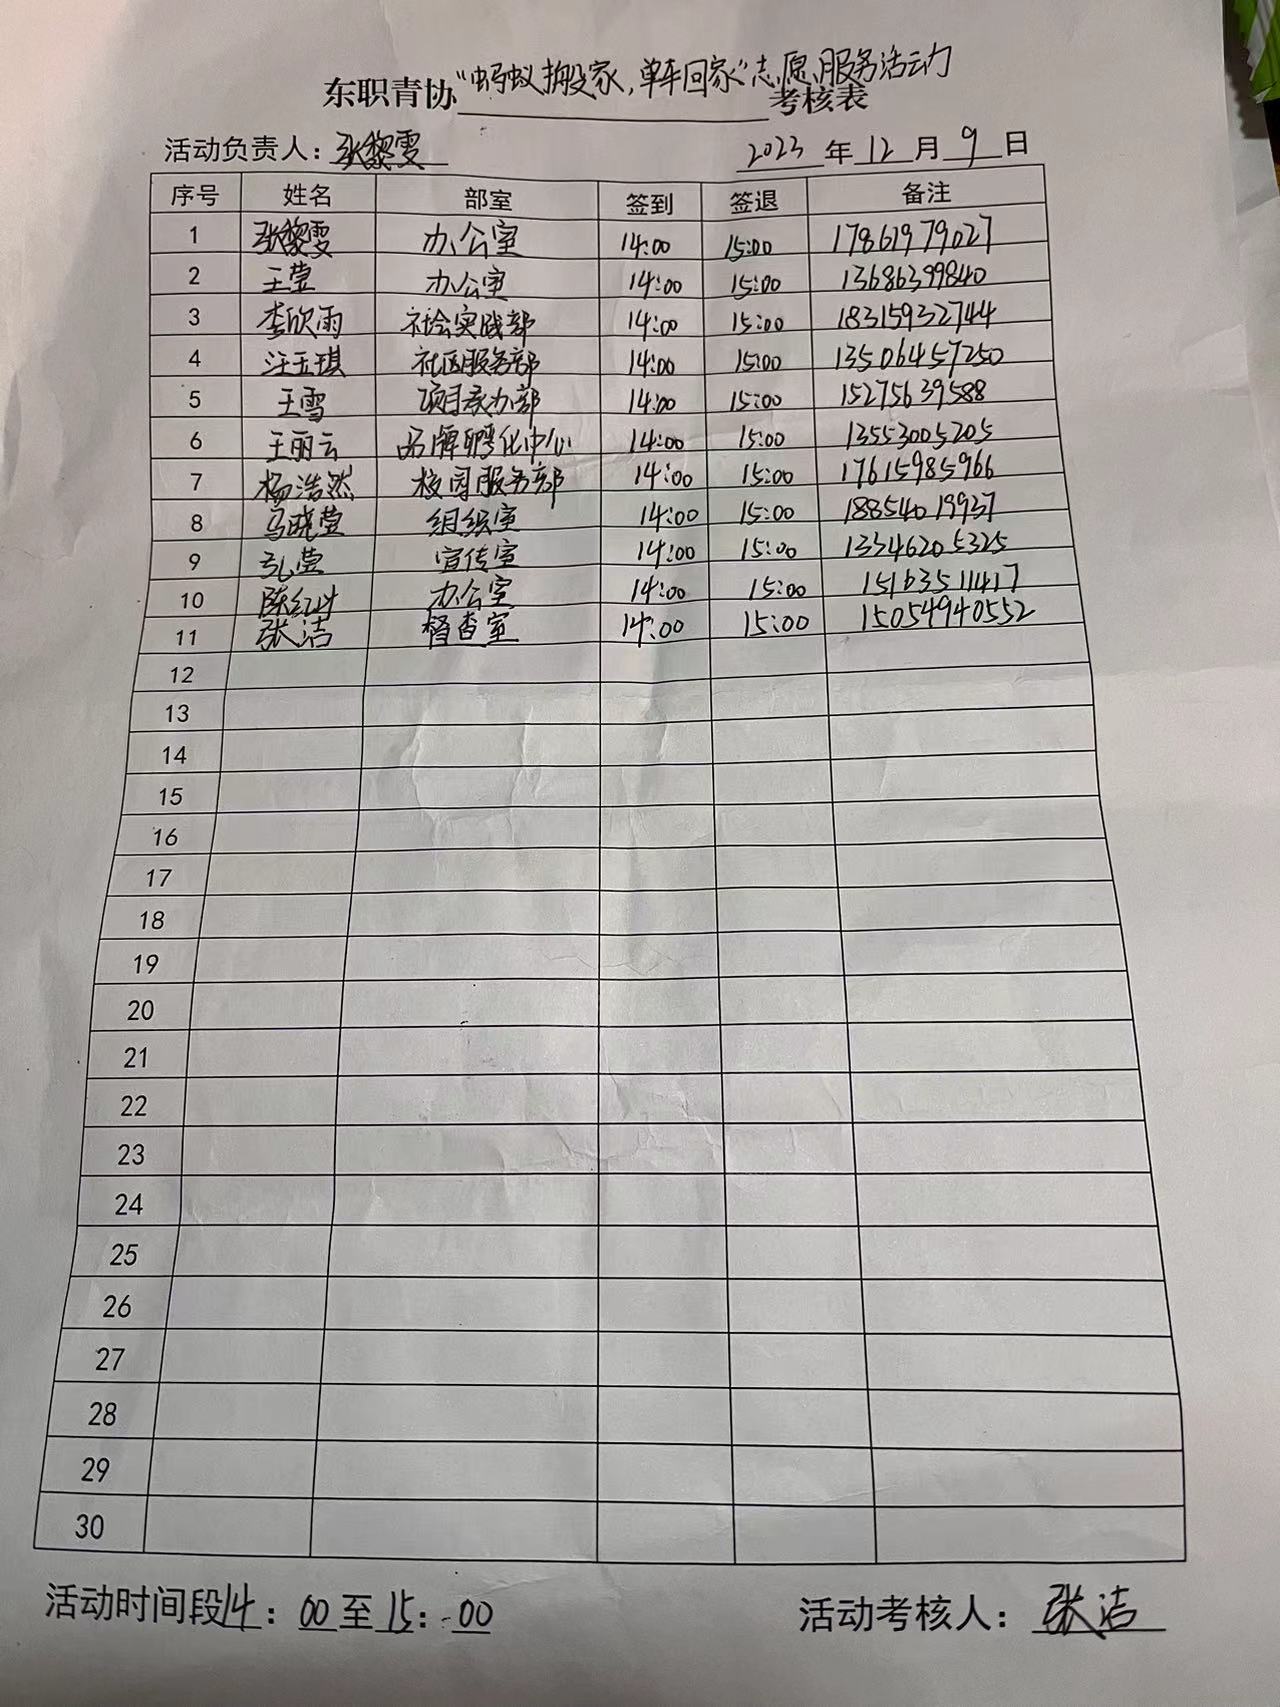 东职青协“蚂蚁搬家,单车回家”志愿服务活动考核表
活动负责人:张黎雯 2023年12月9日
序号 姓名 部室 签到 签退 备注
1 张黎雯 办公室 14:00 15:00 17861979027
2 王莹 办公室 14:00 15:00 13686399840
3 李欣雨 社会实践部 14:00 15:00 18315932744
4 汪玉琪 社区服务部 14:00 15:00 13506457250
5 王雪 项目承办部 14:00 15:00 15275639588
6 王丽云 品牌孵化中心 14:00 15:00 13553005205
7 杨浩然 校园服务部 14:00 15:00 17615985966
8 马晓莹 组织室 14:00 15:00 18854019937
9 孔莹 宣传室 14:00 15:00 13346205325
10 陈红 办公室 14:00 15:00 15163511417
11 张洁 督查室 14:00 15:00 15054940552
12
13
14
15
16
17
18
19
20
21
22
23
24
25
26
27
28
29
30
活动时间段14:00至15:00 活动考核人:张洁